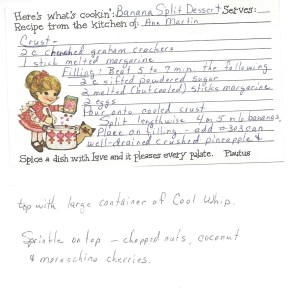 Here's what's cookin': Banana Split Dessert Serves:
Recipe from the kitchen of: Ann Martin
Crust -
2 c crushed graham crackers
1 stick melted margarine
Filling: Beat 5 to 7 min the following
2 c sifted powdered sugar
2 melted (but cooled) sticks margarine
2 eggs
Pour onto cooled crust
Split lengthwise 4 or 5 bananas,
Place on filling - add #303 can
well-drained crushed pineapple &
Spice a dish with love and it pleases every palate. Plautus
top with large container of Cool Whip.
Sprinkle on top - chopped nuts, coconut
& maraschino cherries.